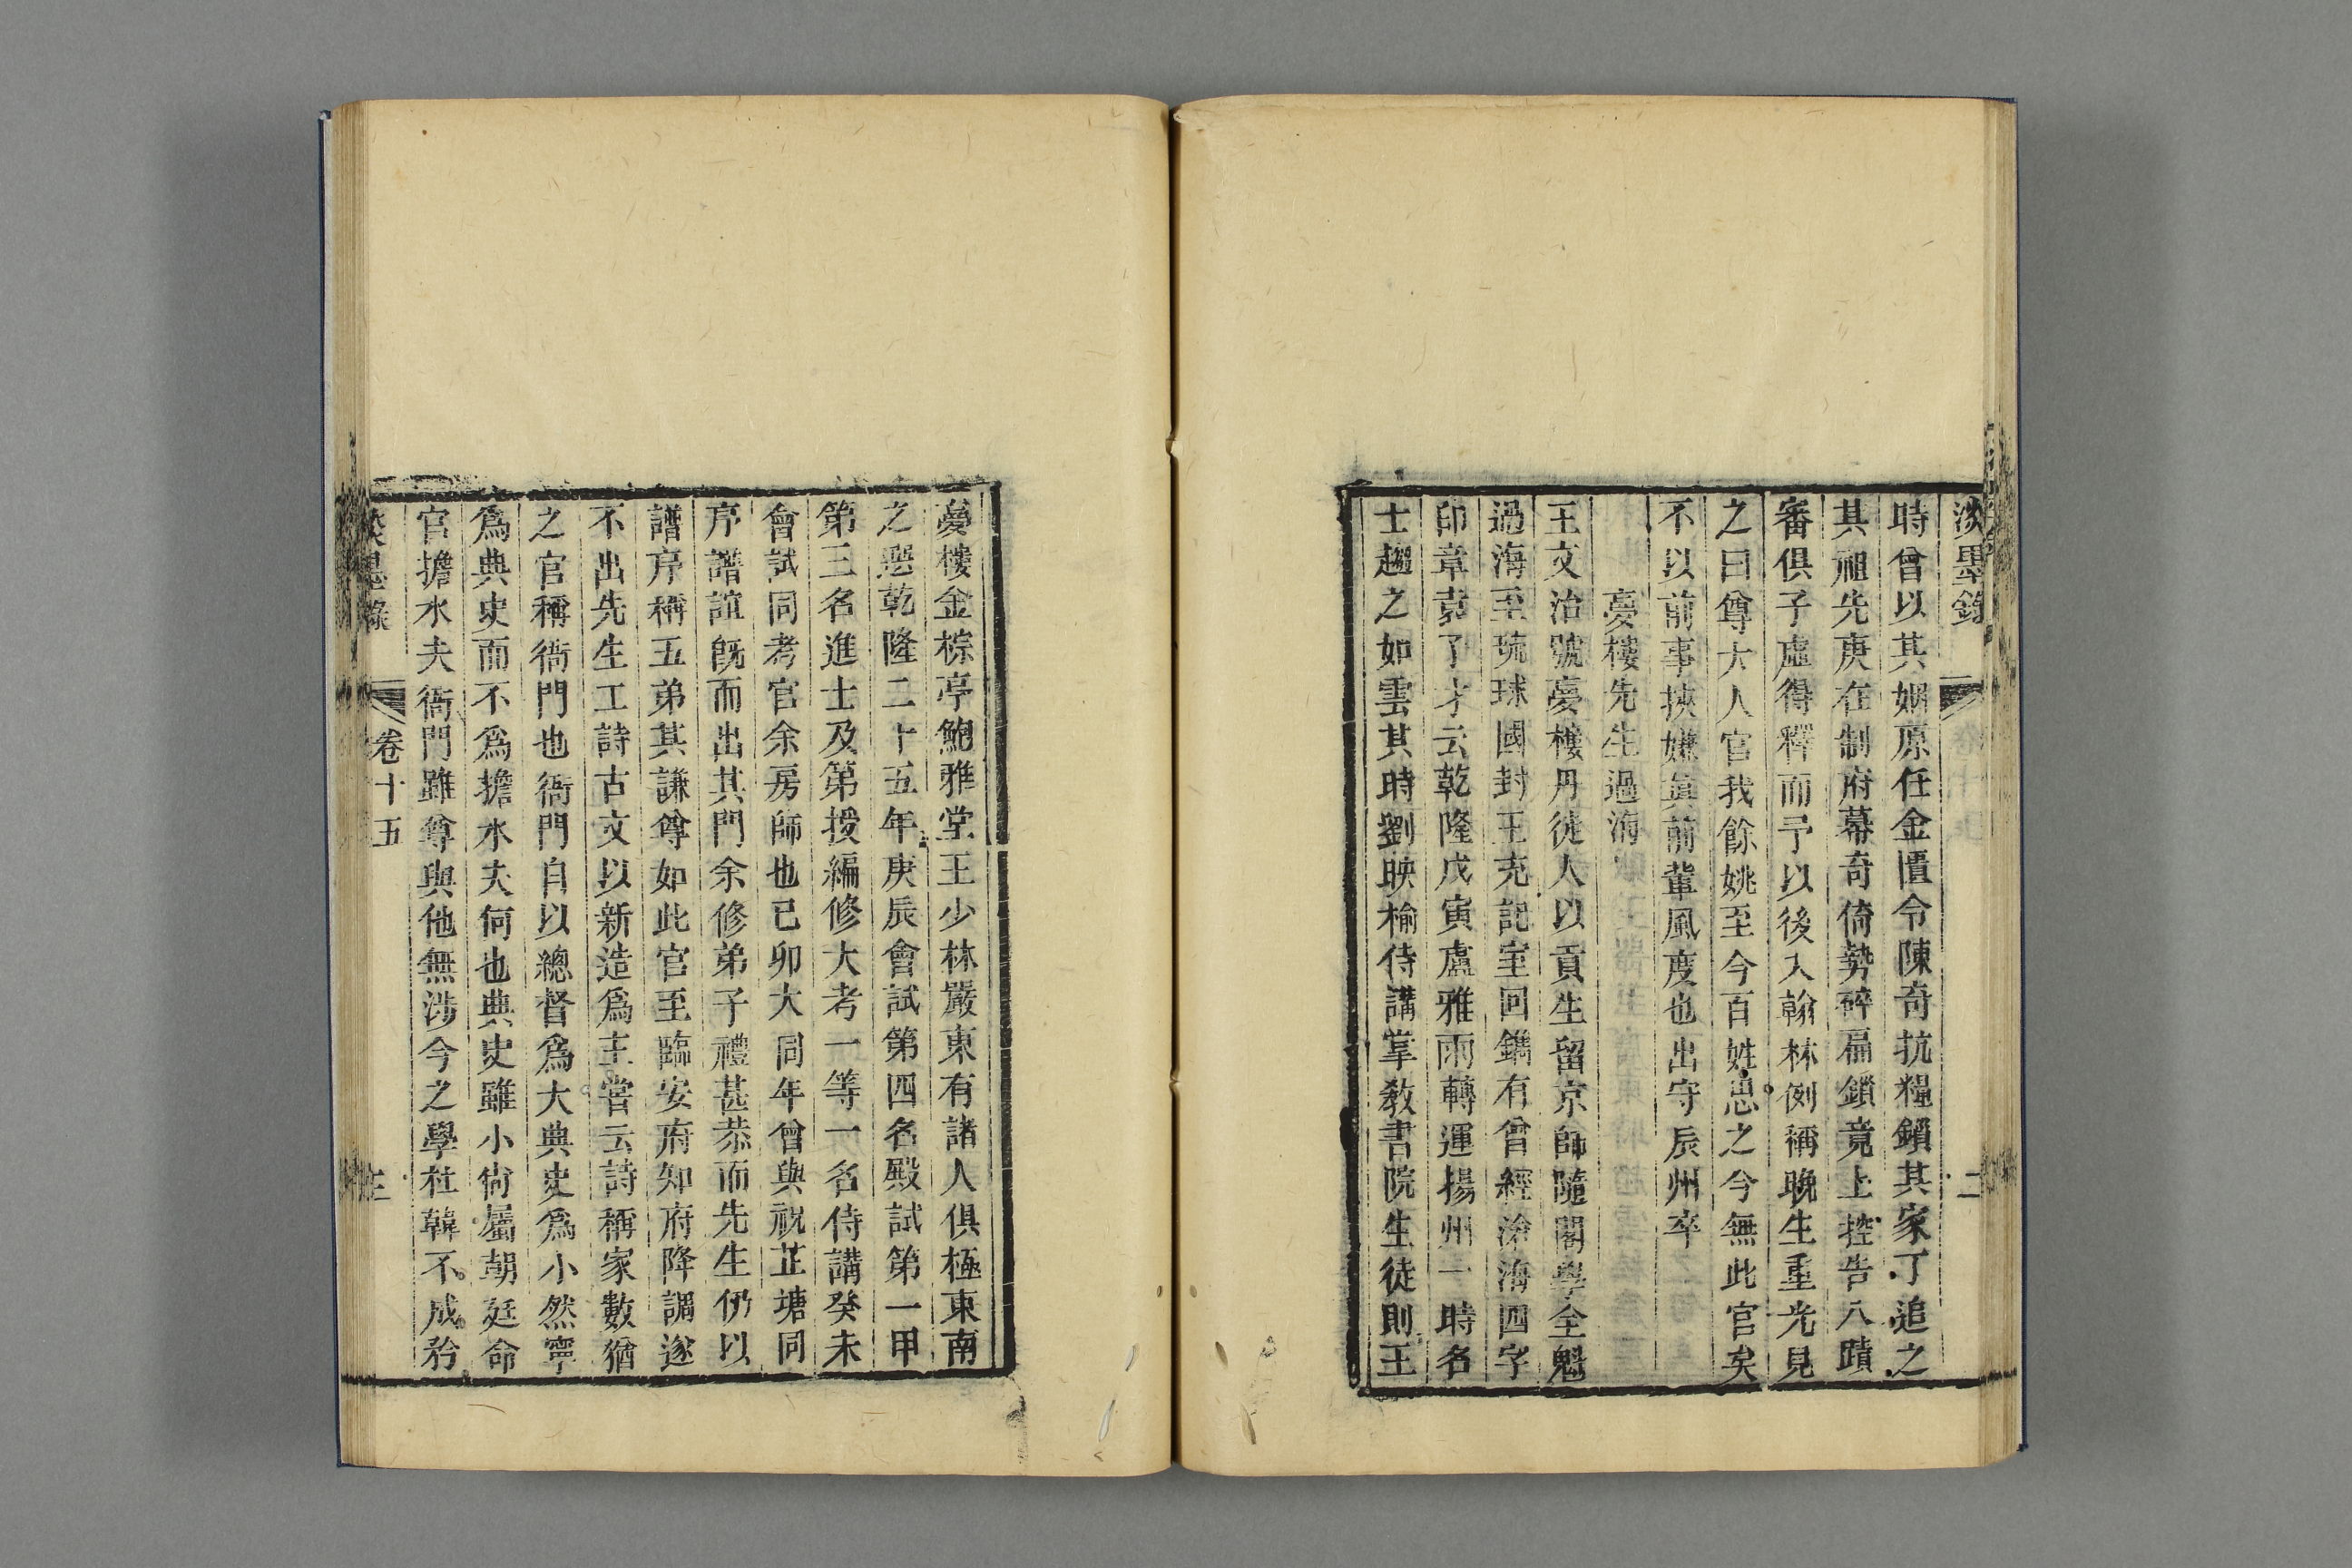 淡墨錄
二
時曾以其姻原任金匱令陳奇抗糧鎖其家丁追之
其祖先庚在制府幕奇倚勢碎扁鎖竟上控告八蹟
審俱子虛得釋而予以後入翰林例稱晚生重光見
之曰尊大人官我餘姚至今百姓思之今無此官矣
不以前事挾嫌眞前輩風度也出守辰州卒
夢樓先生過海
王文治號夢樓丹徒人以貢生留京師隨閣學全魁
過海至琉球國封王充記室回鐫有曾經滄海四字
印章袁了才云乾隆戊寅盧雅雨轉運揚州一時名
士趨之如雲其時劉映榆侍講掌教書院生徒則王
夢樓金棕亭鮑雅堂王少林嚴東有諸人俱極東南
之選乾隆二十五年庚辰會試第四名殿試第一甲
第三名進士及第授編修大考一等一名侍講癸未
會試同考官余房師也已卯大同年曾與祝芷塘同
序譜誼既而出其門余修弟子禮甚恭而先生仍以
譜序稱五弟其謙尊如此官至臨安府知府降調遂
不出先生工詩古文以新造爲主嘗云詩稱家數猶
之官稱衙門也衙門自以總督爲大典史爲小然寧
爲典史而不爲擔水夫何也典史雖小尙屬朝廷命
官擔水夫衙門雖尊與他無涉今之學杜韓不成矜
淡墨錄
卷十五